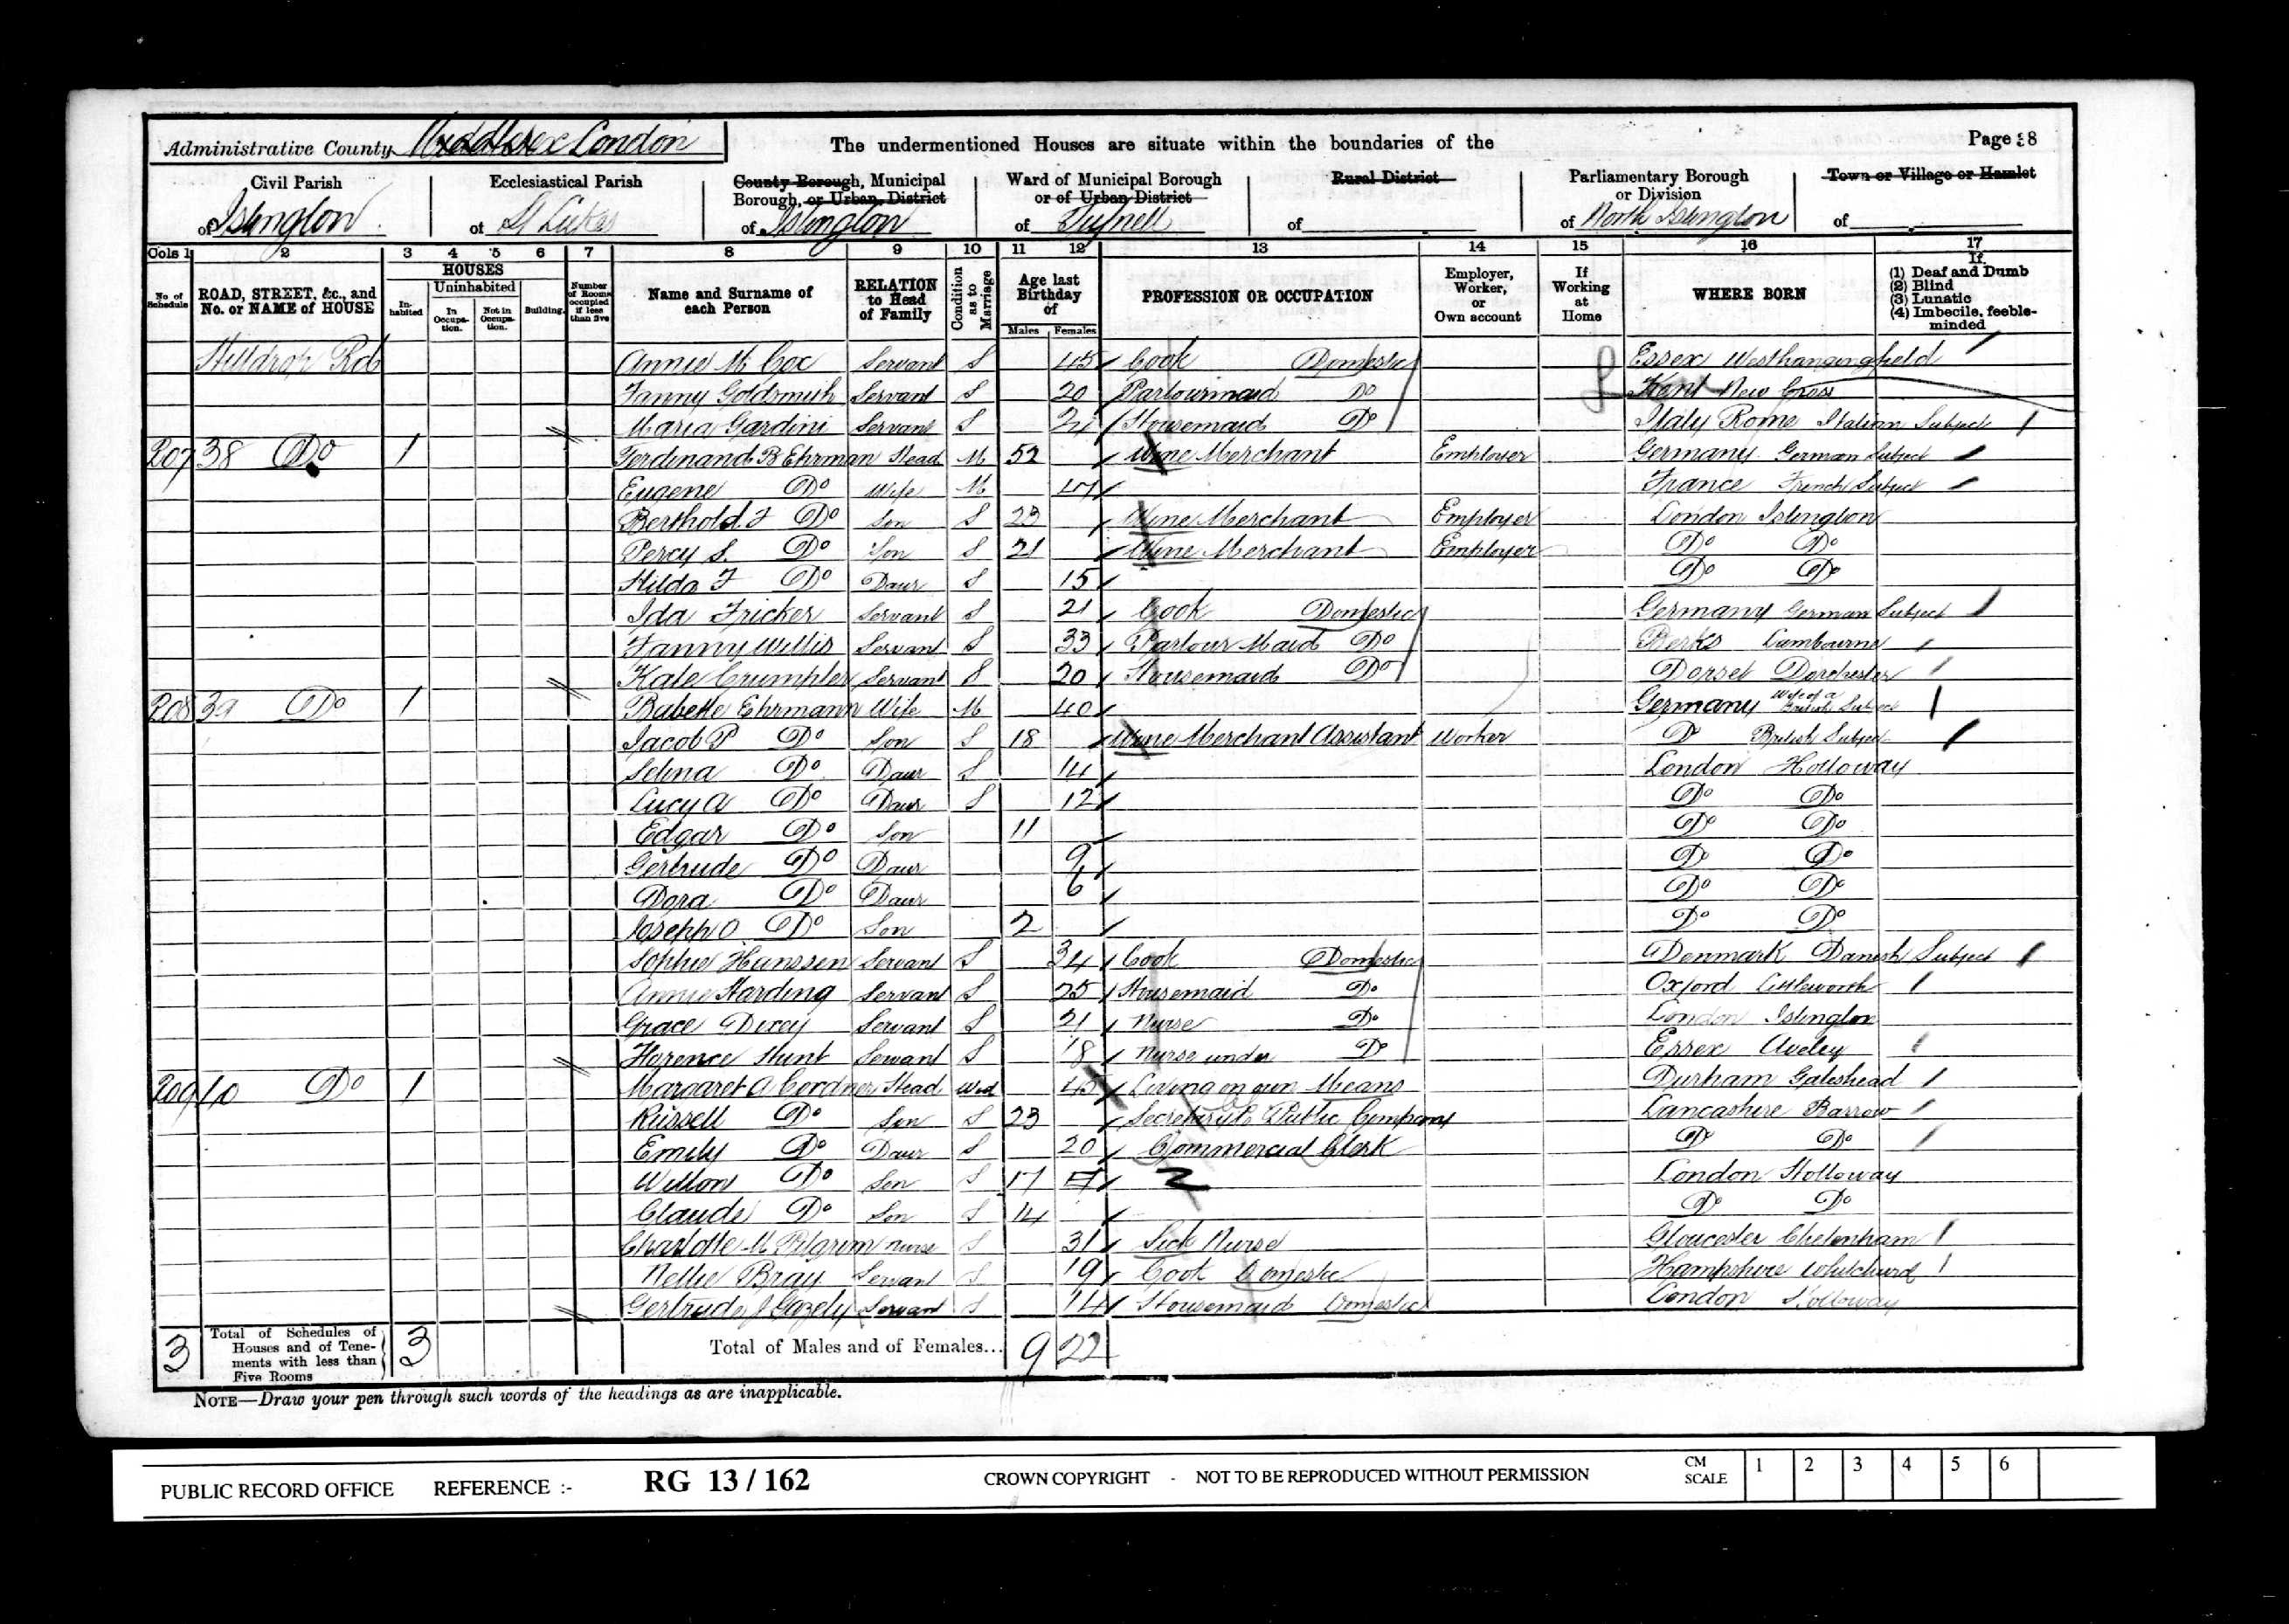 Administrative County Middlesex London
The undermentioned Houses are situate within the boundaries of the
Page 38
Civil Parish of Islington
Ecclesiastical Parish of St Lukes
County Borough, Municipal Borough, or Urban District of Islington
Ward of Municipal Borough or of Urban District of Tufnell
Rural District of
Parliamentary Borough or Division of North Islington
Town or Village or Hamlet of
Cols 1 2 3 4 5 6 7 8 9 10 11 12 13 14 15 16 17
No. of Schedule
ROAD, STREET, &c., and No. or NAME of HOUSE
HOUSES
Inhabited
Uninhabited
In Occupation.
Not in Occupation.
Building.
Number of Rooms occupied if less than five
Name and Surname of each Person
RELATION to Head of Family
Condition as to Marriage
Age last Birthday of
Males Females
PROFESSION OR OCCUPATION
Employer, Worker, or Own account
If Working at Home
WHERE BORN
If
(1) Deaf and Dumb
(2) Blind
(3) Lunatic
(4) Imbecile, feeble-minded
Hilldrop Rd Annie M Cox Servant S 45 Cook Domestic Essex Westhanningfield
Fanny Goldsmith Servant S 20 Parlourmaid Do Kent New Cross
Maria Gardini Servant S 24 Housemaid Do Italy Rome Italian Subject
207 38 Do 1 Ferdinand B Ehrman Head M 52 Wine Merchant Employer Germany German Subject
Eugene Do Wife M 47 France French Subject
Berthold F Do Son S 23 Wine Merchant Employer London Islington
Percy S. Do Son S 21 Wine Merchant Employer Do Do
Hilda F Do Daur S 15 Do Do
Ida Fricker Servant S 21 Cook Domestic Germany German Subject
Fanny Willis Servant S 33 Parlour Maid Do Berks Lambourne
Kate Crumpler Servant S 20 Housemaid Do Dorset Dorchester
208 39 Do 1 Babette Ehrmann Wife M 40 Germany Wife of a British Subject
Jacob P Do Son S 18 Wine Merchant Assistant Worker Do British Subject
Selina Do Daur S 14 London Holloway
Lucy A Do Daur S 12 Do Do
Edgar Do Son 11 Do Do
Gertrude Do Daur 9 Do Do
Dora Do Daur 6 Do Do
Joseph O Do Son 2 Do Do
Sophie Hanssen Servant S 34 Cook Domestic Denmark Danish Subject
Annie Harding Servant S 25 Housemaid Do Oxford Littleworth
Grace Dixey Servant S 21 Nurse Do London Islington
Florence Hunt Servant S 18 Nurse under Do Essex Aveley
209 40 Do 1 Margaret A Cordner Head Wid 45 Living on own Means Durham Gateshead
Russell Do Son S 23 Secretary Public Company Lancashire Barrow
Emily Do Daur S 20 Commercial Clerk Do Do
Wilton Do Son S 17 London Holloway
Claude Do Son S 14 Do Do
Charlotte M Pilgrim nurse S 31 Sick Nurse Gloucester Cheltenham
Nellie Bray Servant S 19 Cook Domestic Hampshire Whitchurch
Gertrude J Gazely Servant S 14 Housemaid Domestic London Holloway
3 Total of Schedules of Houses and of Tenements with less than Five Rooms 3 Total of Males and of Females... 9 22
NOTE—Draw your pen through such words of the headings as are inapplicable.
PUBLIC RECORD OFFICE REFERENCE :- RG 13 / 162 CROWN COPYRIGHT - NOT TO BE REPRODUCED WITHOUT PERMISSION CM SCALE 1 2 3 4 5 6